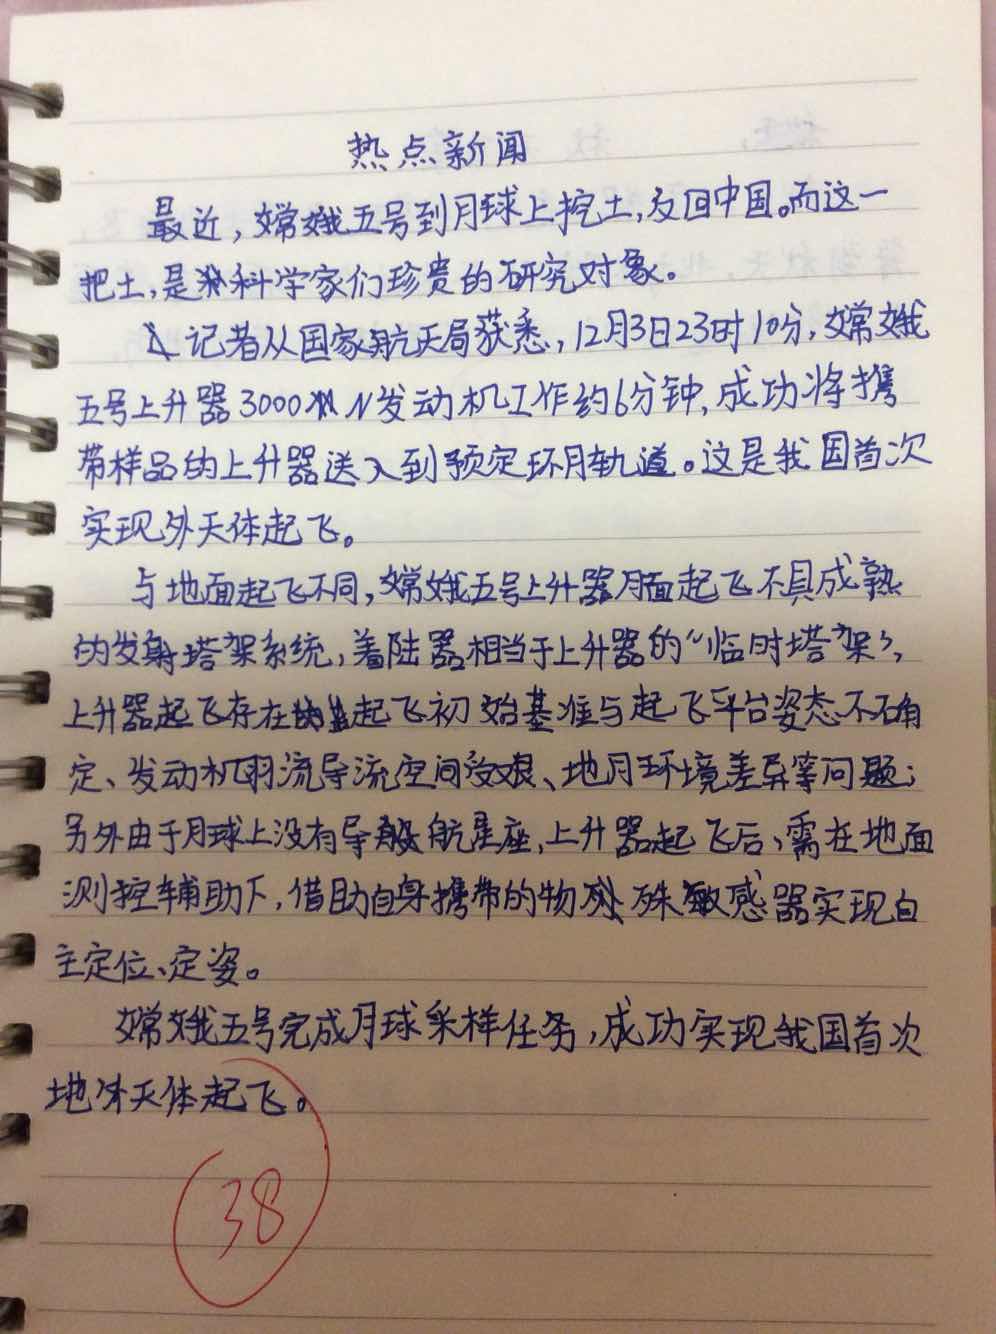 热点新闻
最近，嫦娥五号到月球上挖土，反回中国。而这一
把土，是科学家们珍贵的研究对象。
记者从国家航天局获悉，12月3日23时10分，嫦娥
五号上升器3000N发动机工作约6分钟，成功将携
带样品的上升器送入到预定环月轨道。这是我国首次
实现外天体起飞。
与地面起飞不同，嫦娥五号上升器月面起飞不具成熟
的发射塔架系统，着陆器相当于上升器的“临时塔架”，
上升器起飞存在起飞初始基准与起飞平台姿态不确
定、发动机羽流导流空间受艰、地月环境差异等问题；
另外由于月球上没有导航星座，上升器起飞后，需在地面
测控辅助下，借助自身携带的物殊敏感器实现自
主定位、定姿。
嫦娥五号完成月球采样任务，成功实现我国首次
地外天体起飞。
38